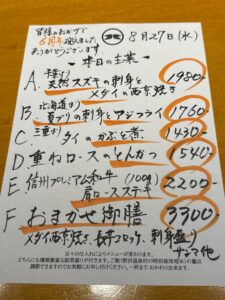 皆様のおかげで
6周年迎えました
ありがとうございます
8月27日(水)
本日の主菜
A. 千葉産
天然スズキの刺身と
メダイの西京焼き 1980-
B. 北海道産
夏ブリの刺身とアジフライ 1760-
C 三重産
タイのかぶと煮 1430-
D 重ねロースのとんかつ 1540-
E 信州プレミアム和牛(100g)
肩ロースステーキ 2200-
F おまかせ御膳 3300-
メダイ西京焼き、長芋コロッケ、刺身盛り
など他
日々の仕入れによりメニューが変わります。